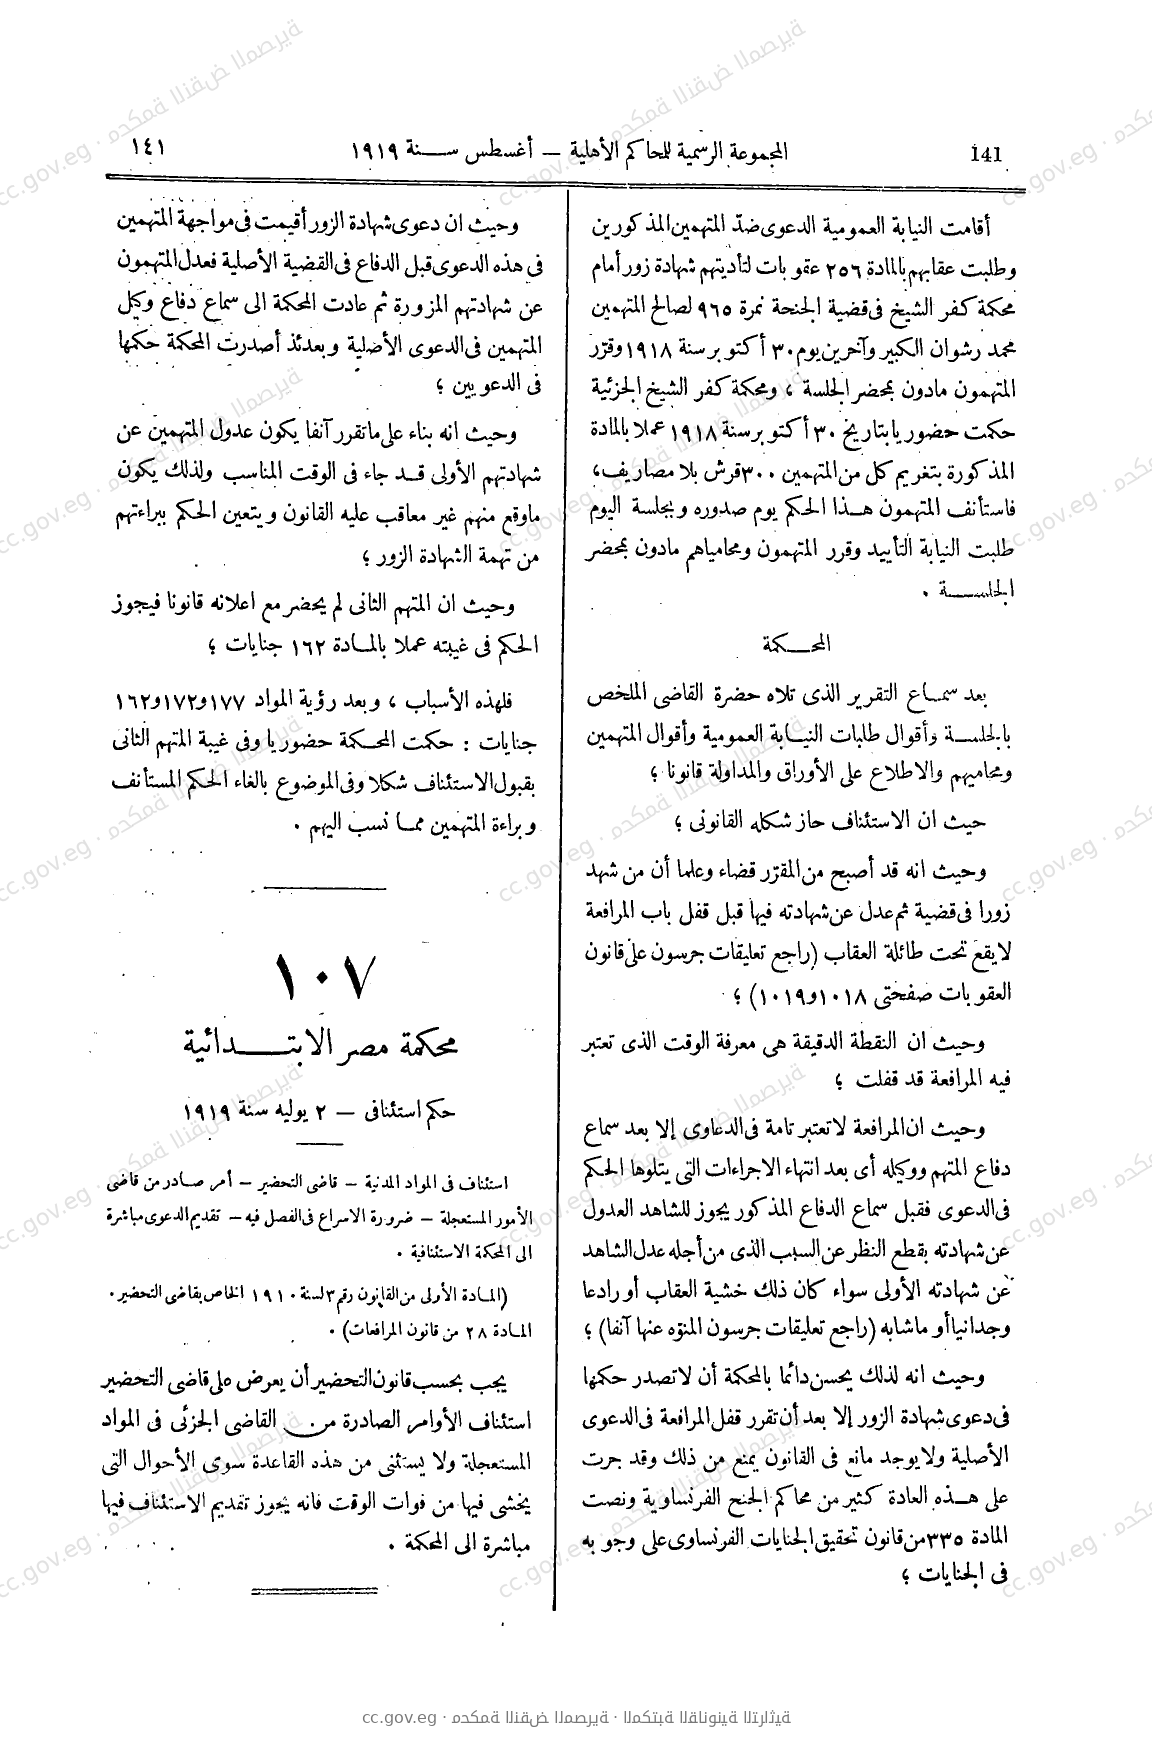 141
المجموعة الرسمية للحاكم الأهلية — أغسطس سنة ١٩١٩
١٤١
أقامت النيابة العمومية الدعوى ضدّ المتهمين المذكورين
وطلبت عقابهم بالمادة ٢٥٦ عقوبات لتأديتهم شهادة زور أمام
محكمة كفر الشيخ فى قضية الجنحة نمرة ٩٦٥ لصالح المتهمين
محمد رشوان الكبير وآخرين يوم ٣٠ أكتوبر سنة ١٩١٨ وقرّر
المتهمون مادون بمحضر الجلسة ، ومحكمة كفر الشيخ الجزئية
حكمت حضوريا بتاريخ ٣٠ أكتوبر سنة ١٩١٨ عملا بالمادة
المذكورة بتغريم كل من المتهمين ٣٠٠ قرش بلا مصاريف ،
فاستأنف المتهمون هذا الحكم يوم صدوره وبجلسة اليوم
طلبت النيابة التأييد وقرر المتهمون ومحامياهم مادون بمحضر
الجلسة .
المحكمة
بعد سماع التقرير الذى تلاه حضرة القاضى الملخص
بالجلسة وأقوال طلبات النيابة العمومية وأقوال المتهمين
ومحاميهم والاطلاع على الأوراق والمداولة قانونا ؛
حيث ان الاستئناف حاز شكله القانونى ؛
وحيث انه قد أصبح من المقرّر قضاء وعلما أن من شهد
زورا فى قضية ثم عدل عن شهادته فيها قبل قفل باب المرافعة
لا يقع تحت طائلة العقاب (راجع تعليقات جرسون على قانون
العقوبات صفحتى ١٠١٨ و ١٠١٩) ؛
وحيث ان النقطة الدقيقة هى معرفة الوقت الذى تعتبر
فيه المرافعة قد قفلت ؛
وحيث ان المرافعة لا تعتبر تامة فى الدعاوى إلا بعد سماع
دفاع المتهم ووكيله أى بعد انتهاء الاجراءات التى يتلوها الحكم
فى الدعوى فقبل سماع الدفاع المذكور يجوز للشاهد العدول
عن شهادته بقطع النظر عن السبب الذى من أجله عدل الشاهد
عن شهادته الأولى سواء كان ذلك خشية العقاب أو رادعا
وجدانيا أو ماشابه (راجع تعليقات جرسون المنوّه عنها آنفا) ؛
وحيث انه لذلك يحسن دائما بالمحكمة أن لا تصدر حكمها
فى دعوى شهادة الزور إلا بعد أن تقرر قفل المرافعة فى الدعوى
الأصلية ولا يوجد مانع فى القانون يمنع من ذلك وقد جرت
على هذه العادة كثير من محاكم الجنح الفرنساوية ونصت
المادة ٣٣٥ من قانون تحقيق الجنايات الفرنساوى على وجوبه
فى الجنايات ؛
وحيث ان دعوى شهادة الزور أقيمت فى مواجهة المتهمين
فى هذه الدعوى قبل الدفاع فى القضية الأصلية فعدل المتهمون
عن شهادتهم المزورة ثم عادت المحكمة الى سماع دفاع وكيل
المتهمين فى الدعوى الأصلية وبعدئذ أصدرت المحكمة حكمها
فى الدعويين ؛
وحيث انه بناء على ماتقرر آنفا يكون عدول المتهمين عن
شهادتهم الأولى قد جاء فى الوقت المناسب ولذلك يكون
ماوقع منهم غير معاقب عليه القانون ويتعين الحكم ببراءتهم
من تهمة الشهادة الزور ؛
وحيث ان المتهم الثانى لم يحضر مع اعلانه قانونا فيجوز
الحكم فى غيبته عملا بالمادة ١٦٢ جنايات ؛
فلهذه الأسباب ، وبعد رؤية المواد ١٧٧ و١٧٢ و١٦٢
جنايات : حكمت المحكمة حضوريا وفى غيبة المتهم الثانى
بقبول الاستئناف شكلا وفى الموضوع بالغاء الحكم المستأنف
وبراءة المتهمين مما نسب اليهم .
١٠٧
محكمة مصر الابتدائية
حكم استئنافى — ٢ يوليه سنة ١٩١٩
استئناف فى المواد المدنية — قاضى التحضير — أمر صادر من قاضى
الأمور المستعجلة — ضرورة الاسراع فى الفصل فيه — تقديم الدعوى مباشرة
الى المحكمة الاستئنافية .
(المادة الأولى من القانون رقم ٣ لسنة ١٩١٠ الخاص بقاضى التحضير .
المادة ٢٨ من قانون المرافعات) .
يجب بحسب قانون التحضير أن يعرض على قاضى التحضير
استئناف الأوامر الصادرة من القاضى الجزئى فى المواد
المستعجلة ولا يستثنى من هذه القاعدة سوى الأحوال التى
يخشى فيها من فوات الوقت فانه يجوز تقديم الاستئناف فيها
مباشرة الى المحكمة .
cc.gov.eg · محكمة النقض المصرية · المكتبة القانونية التراثية